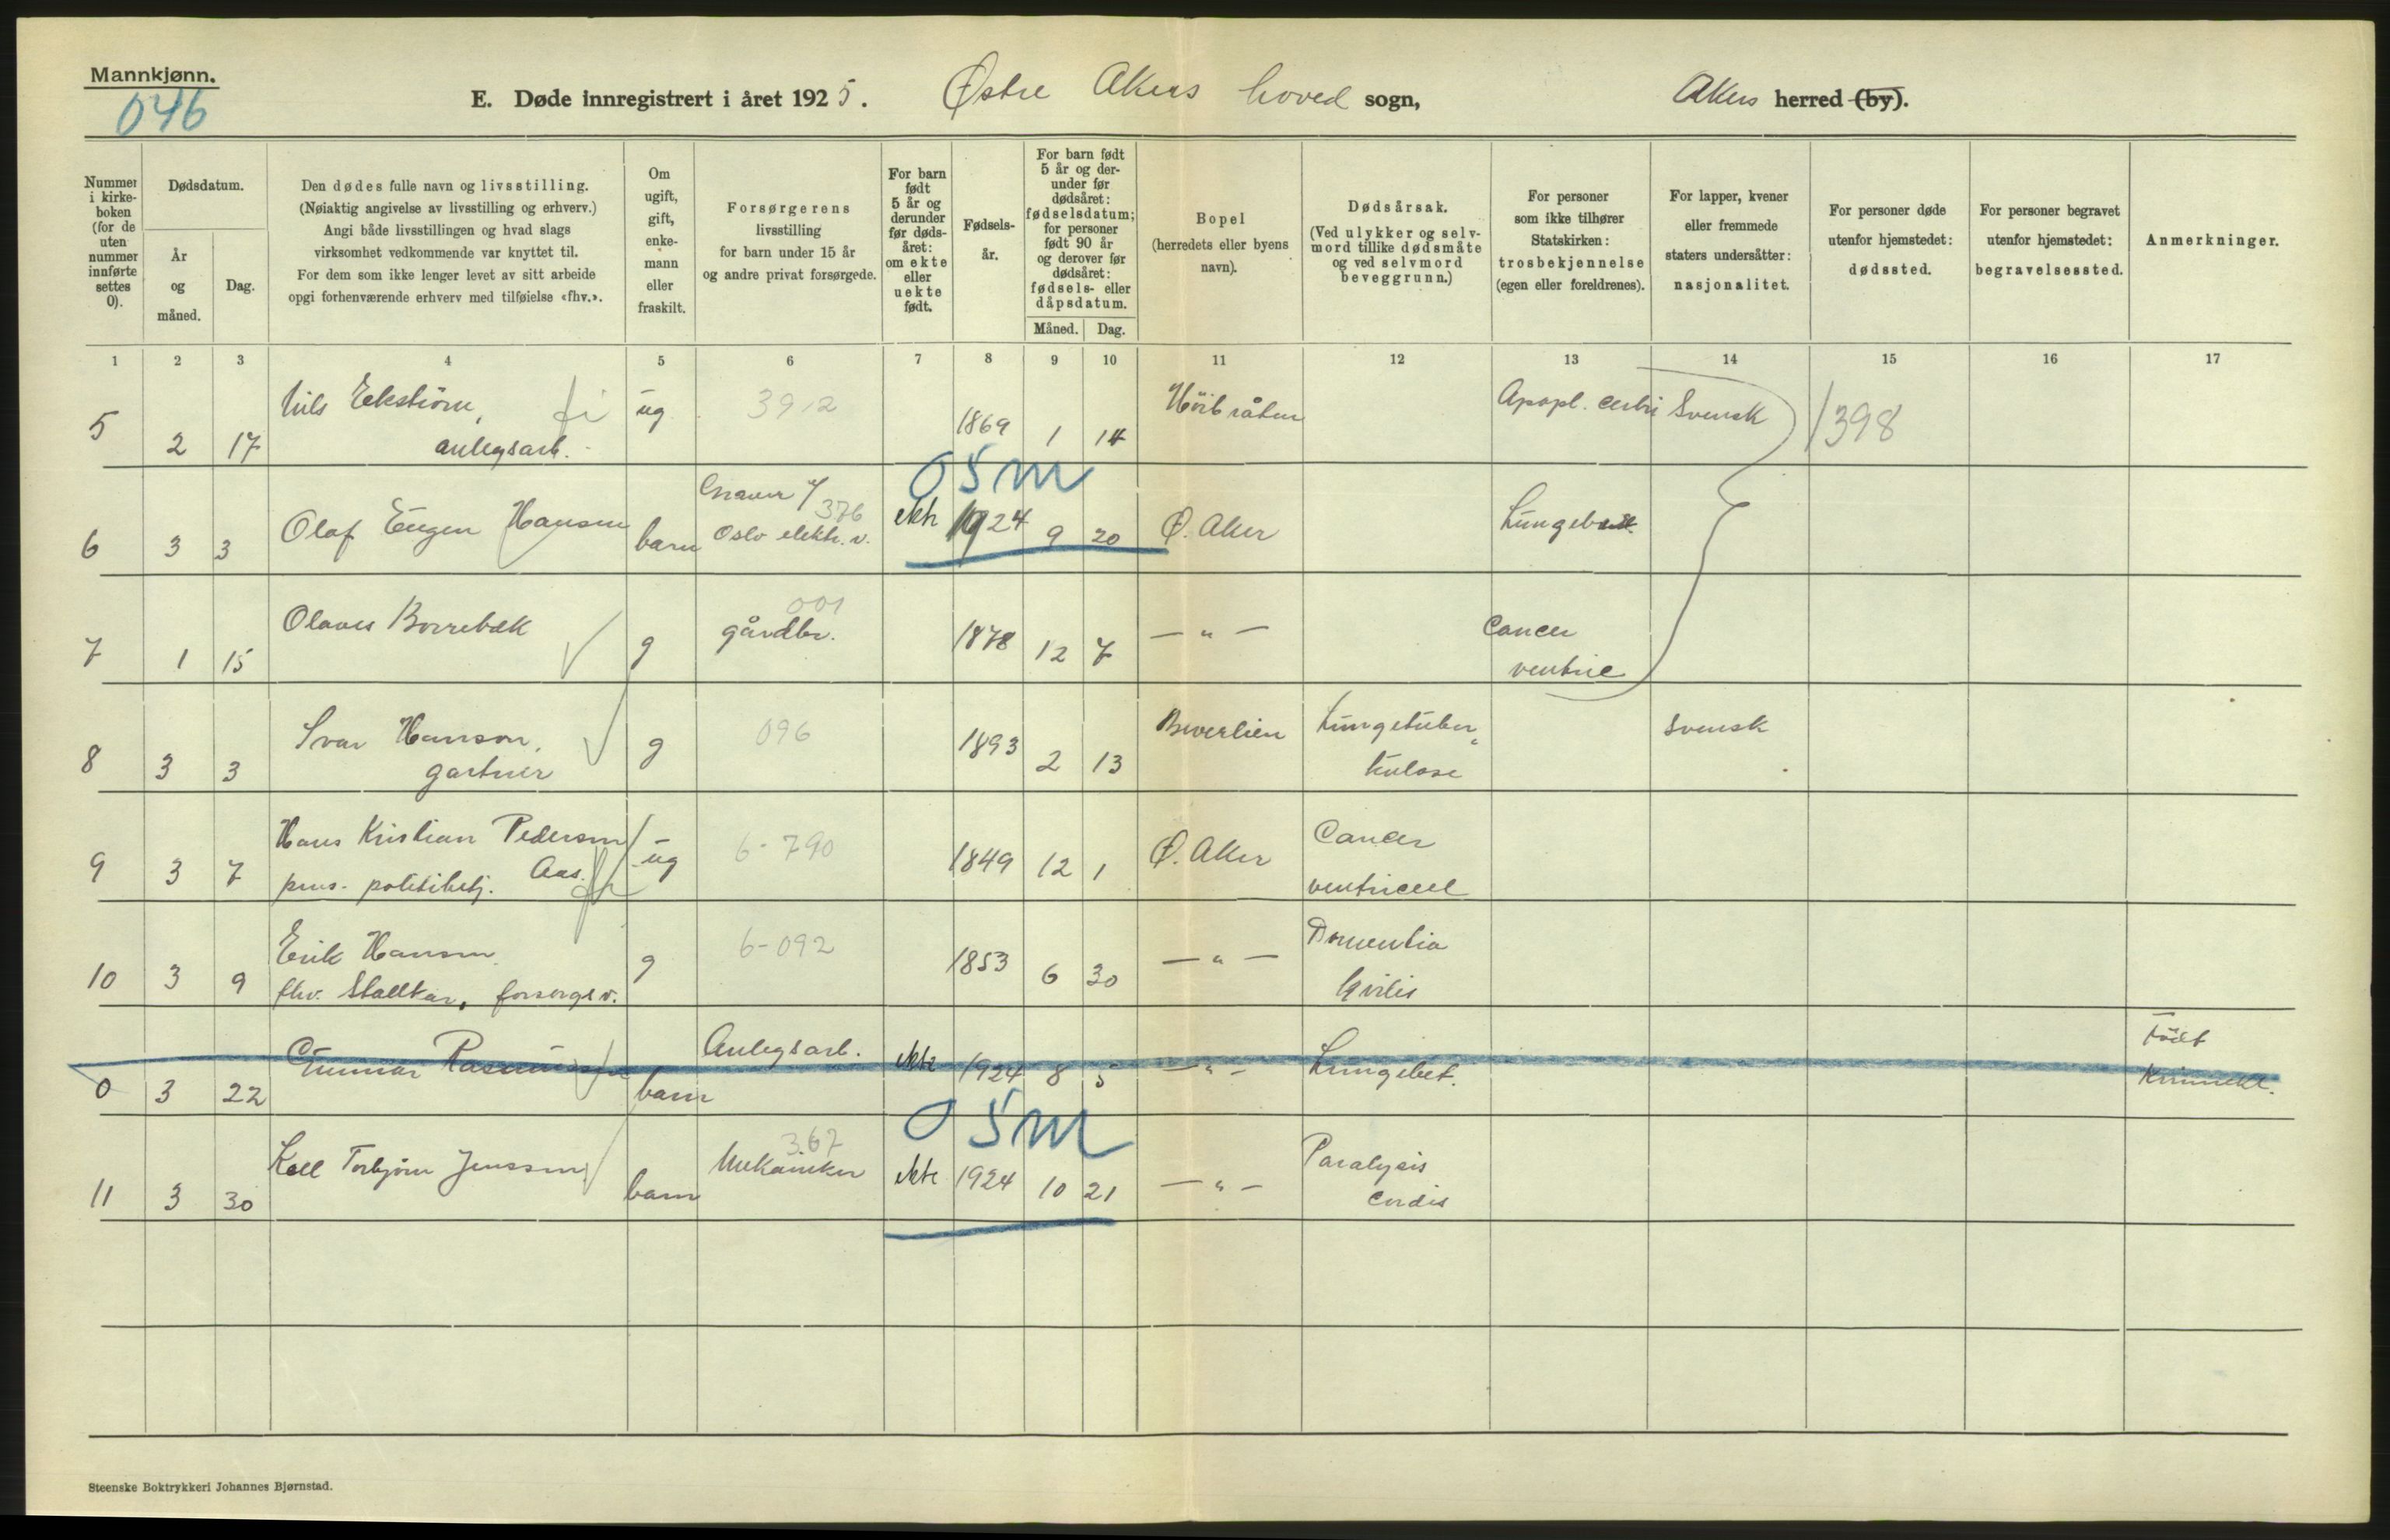 Mannkjønn.
046
E. Døde innregistrert i året 1925. Østre Akers hoved sogn, Akers herred (by).
Nummer i kirke-boken (for de uten nummer innførte settes 0).
Dødsdatum.
År og måned.
Dag.
Den dødes fulle navn og livsstilling.
(Nøiaktig angivelse av livsstilling og erhverv.)
Angi både livsstillingen og hvad slags
virksomhet vedkommende var knyttet til.
For dem som ikke lenger levet av sitt arbeide
opgi forhenværende erhverv med tilføielse «fhv.».
Om ugift, gift, enke-mann eller fraskilt.
Forsørgerens
livsstilling
for barn under 15 år
og andre privat forsørgede.
For barn født 5 år og derunder før døds-året: om ekte eller uekte født.
Fødsels-år.
For barn født 5 år og der-under før dødsåret: fødselsdatum; for personer født 90 år og derover før dødsåret: fødsels- eller dåpsdatum.
Måned. Dag.
Bopel
(herredets eller byens
navn).
Dødsårsak.
(Ved ulykker og selv-
mord tillike dødsmåte
og ved selvmord
beveggrunn.)
For personer
som ikke tilhører
Statskirken:
trosbekjennelse
(egen eller foreldrenes).
For lapper, kvener
eller fremmede
staters undersåtter:
nasjonalitet.
For personer døde
utenfor hjemstedet:
dødssted.
For personer begravet
utenfor hjemstedet:
begravelsessted.
Anmerkninger.
1 2 3 4 5 6 7 8 9 10 11 12 13 14 15 16 17
5 2 17 Nils Ekström, ug 3912 1869 1 14 Apopl. cerbri Svensk 1398
anlegsarb.
05m
6 3 3 Olaf Eugen Hansen barn 376 Oslo elektr.v. ekte 1924 9 20 Ø. Aker
7 1 15 Olaves Borrebæk g 001 gårdbr. 1878 12 7 — " — Cancer
ventric
8 3 3 Ivar Hanson, g 096 1893 2 13 Bverlien Lungetuber-
gartner kulose Svensk
9 3 7 Hans Kristian Pedersen ug 6-790 1849 12 1 Ø. Aker Cancer
Aas. pens. politibetj. ventricul
10 3 9 Erik Hansen g 6-092 1853 6 30 — " — Dementia
fhv. Stallkar, forsørges v.
0 3 22 Gunnar Rasmussen barn Anlegsarb. ekte 1924 8 5 — " — Lungebet. Født
05m
11 3 30 Kell Torbjørn Jenssen barn 367 Mekaniker ekte 1924 10 21 — " — Paralysis
cordis
Steenske Boktrykkeri Johannes Bjørnstad.